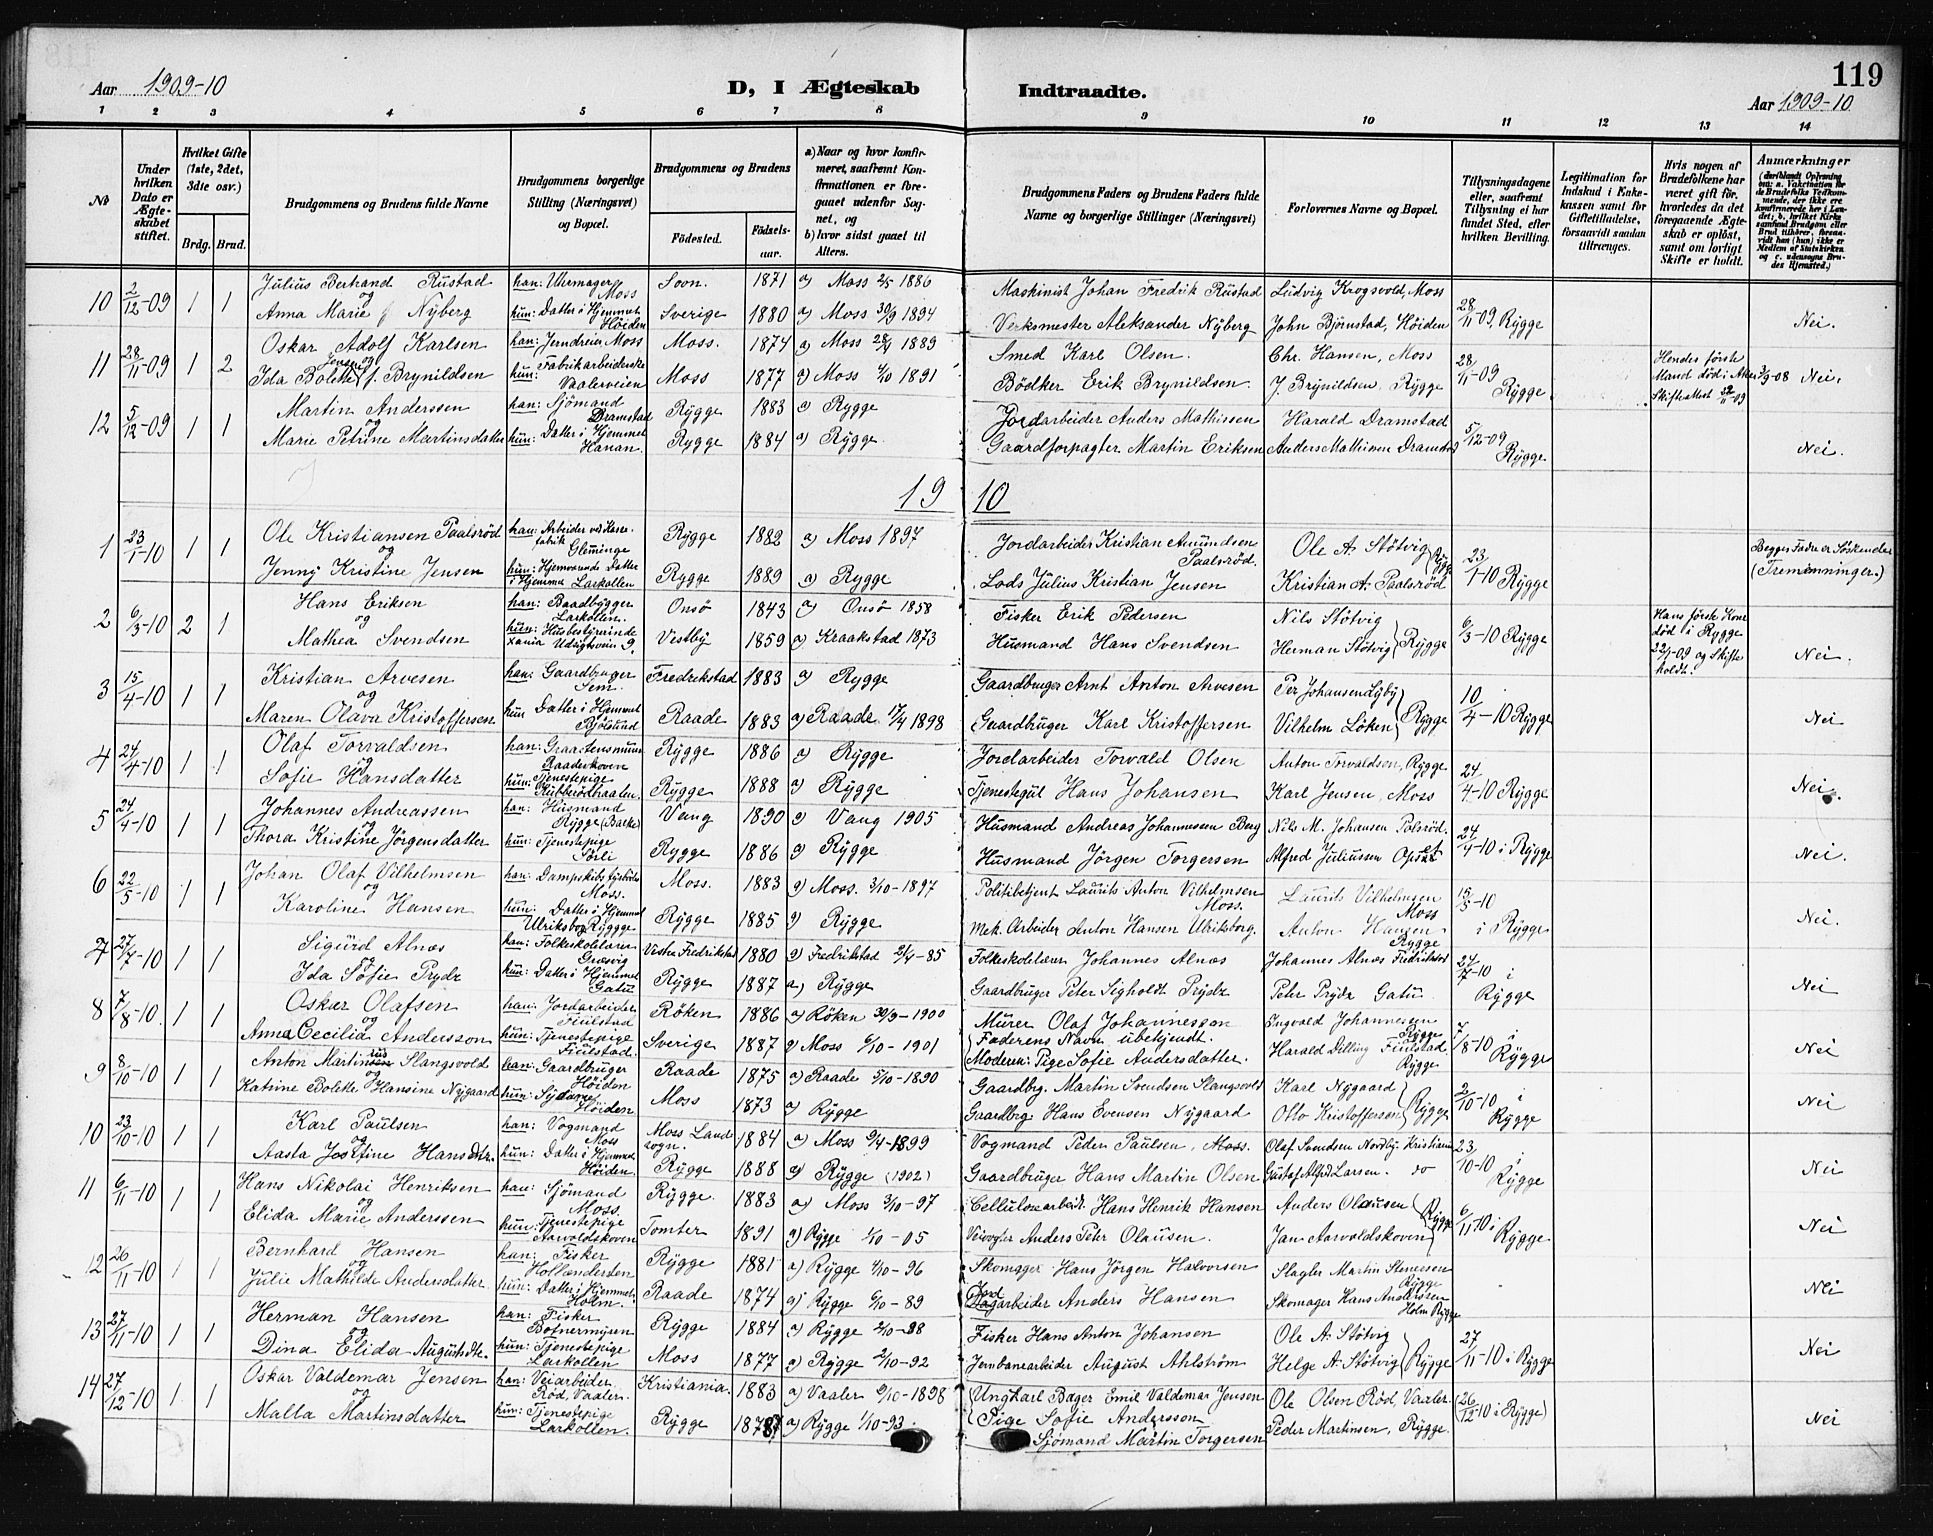 119
Aar 1909-10
D, I Ægteskab Indtraadte.
Aar 1909-10
1 2 3 4 5 6 7 8 9 10 11 12 13 14
No
Under hvilken Dato er Ægteskabet stiftet.
Hvilket Gifte (1ste, 2det, 3die osv.)
Brdg. Brud.
Brudgommens og Brudens fulde Navne
Brudgommens borgerlige Stilling (Næringsvei) og Bopæl.
Brudgommens og Brudens
Fødested. Fødselsaar.
a) Naar og hvor konfirmeret, saafremt Konfirmationen er foregaaet udenfor Sognet, og
b) hvor sidst gaaet til Alters.
Brudgommens Faders og Brudens Faders fulde Navne og borgerlige Stillinger (Næringsvei)
Forlovernes Navne og Bopæl.
Tillysningsdagene eller, saafremt Tillysning ei har fundet Sted, efter hvilken Bevilling.
Legitimation for Indskud i Enkekassen samt for Giftetilladelse, forsaavidt saadan tiltrænges.
Hvis nogen af Brudefolkene har været gift før, hvorledes da det foregaaende Ægteskab er opløst, samt om lovligt Skifte er holdt.
Anmærkninger
10 2/12-09 1 1 Julius Berhand Rustad han: Uhrmager Moss Soon. 1871 a) Moss 2/5 1886 Maskinist Johan Fredrik Rustad Ludvig Krogsvold, Moss
og
Anna Marie Nyberg hun: Datter i Hjemmet Høiden Sverige 1880 a) Moss 30/9 1894 Verksmester Aleksander Nyberg John Bjørnstad, Høiden 28/11-09, Rygge Nei.
11 28/11-09 1 2 Oskar Adolf Karlsen han: Jerndreier Moss Moss. 1874 a) Moss 1889 Smed Karl Olsen. Chr. Hansen, Moss 28/11-09 Rygge Hendes første Mand død
og
Ida Bolette f. Brynildsen hun: Fabrikarbeiderske Vaalerveien Moss 1877 a) Moss 1891 Bødker Erik Brynildsen. J. Brynildsen, Rygge Skifteattest Nei.
12 5/12-09 1 1 Martin Anderssen han: Sjømand Dramstad Rygge 1883 a) Rygge Jordarbeider Anders Mathisen Harald Dramstad
og
Marie Petrine Martinsdatter hun: Datter i Hjemmet Hanan. Rygge 1884 a) Rygge. Gaardforpagter Martin Eriksen Anders Mathisen Dramstad 5/12-09 Rygge. Nei.
1910
1 23/1-10 1 1 Ole Kristiansen Paalsrød han: Arbeider ved fabrik Glemminge Rygge 1882 a) Moss 1897 Jordarbeider Kristian Amundsen Paalsrød. Ole A. Støtvig
og
Jenny Kristine Jensen hun: Hjemværende Datter i Hjemmet Larkollen Rygge 1889 a) Rygge Lods Julius Kristian Jensen Kristian A. Paalsrød Rygge 23/1-10 Rygge Begges Fædre er Søskende (Tremenninger.)
2 6/3-10 2 1 Hans Eriksen han: Baadbygger Larkollen. Onsø 1843 a) Onsø 1858 Fisker Erik Pedersen Nils Støtvig
og
Mathea Svendsen hun: Husbestyrerinde Vestby 1859 a) Kraakstad 1873 Husmand Hans Svendsen Herman Støtvig Rygge 6/3-10 Rygge Hans første Kone død i Rygge 22/1-09 og Skifte holdt. Nei.
3 15/4-10 1 1 Kristian Arvesen han: Gaardbruger Fredrikstad 1883 a) Rygge Gaardbruger Arnt Anton Arvesen Per Johansen Lyby
og
Maren Olava Kristoffersen hun Datter i Hjemmet Bjølsund Raade 1883 a) Raade 17/4 1898 Gaardbruger Karl Kristoffersen Vilhelm Løken Rygge 10/4-10 Rygge Nei
4 24/4-10 1 1 Olaf Torvaldsen han: Graastensmurer Raaderskoven Rygge 1886 a) Rygge Jordarbeider Torvald Olsen Anton Torvaldsen, Rygge
og
Sofie Hansdatter hun: Tjenestepige Rygge 1888 a) Rygge Tjenestegut Hans Johansen Karl Jensen, Moss 24/4-10 Rygge Nei.
5 24/4-10 1 1 Johannes Andreassen han: Husmand Rygge Vang 1890 a) Vang 1905 Husmand Andreas Johannessen Berg Nils M. Johansen Palsrød.
og
Thora Kristine Jørgensdatter hun: Tjenestepige Sørli Rygge 1886 a) Rygge Husmand Jørgen Torgersen Alfred Juliussen 24/4-10 i Rygge Nei.
6 22/5-10 1 1 Johan Olaf Vilhelmsen han: Moss. Moss. 1883 a) Moss. 3/10-1897 Politibetjent Laurits Anton Vilhelmsen Moss. Laurits Vilhelmsen Moss
og
Karoline Hansen hun: Datter i Hjemmet Ulriksborg Rygge Rygge 1885 a) Rygge Mek. Arbeider Anton Hansen Ulriksborg. Anton Hansen Rygge 15/5-10 i Rygge Nei.
7 27/7-10 1 1 Sigurd Alnæs han: Folkeskolelærer Græsvig Vestre Fredrikstad 1880 a) Fredrikstad 2/4-85 Folkeskolelærer Johannes Alnæs Johannes Alnæs Fredrikstad
og
Ida Sofie Prydz hun: Datter i Hjemmet Gatu Rygge 1887 a) Rygge Gaardbruger Peter Sigholdt Prydz Peter Prydz Gatu 24/7-10 i Rygge Nei
8 7/8-10 1 1 Oskar Olafsen han: Jordarbeider Fiulstad Røken 1886 a) Røken 30/9-1900 Murer Olaf Johannesson Ingvald Johannessen Rygge
og
Anna Cecilia Andersson hun: Tjenestepige Fiulstad. Sverige 1887 a) Moss 6/10-1901 Faderens Navn ubetjendt. Moderen: Pige Sofie Andersdatter. Harald Dilling Fiulstad Rygge 7/8-10 i Rygge Nei
9 8/10-10 1 1 Anton Martinius Slangsvold han: Gaardbruger Høiden Raade 1875 a) Raade 5/10-1890 Gaardbrg. Martin Svendsen Slangsvold Karl Nygaard
og
Katrine Bolette Hansine Nygaard hun: Høiden Moss 1873 a) Rygge Gaardbrg Hans Evensen Nygaard Otto Kristoffersen Rygge 2/10-10 i Rygge Nei
10 23/10-10 1 1 Karl Paulsen han: Vogmand Moss Moss Landsogn. 1884 a) Moss 9/4-1899 Vogmand Peder Paulsen, Moss. Olaf Svendsen Nordby, Kristiania
og
Aasta Josefine Hansdtr. hun: Datter i Hjemmet Høiden. Rygge 1888 a) Rygge (1902) Gaardbruger Hans Martin Olsen Gustaf Alfred Larsen. do 23/10-10 i Rygge Nei
11 6/11-10 1 1 Hans Nikolai Henriksen han: Sjømand Moss. Rygge. 1883 a) Moss 3/10-97 Cellulosearbeid. Hans Henrik Hansen Anders Olausen
og
Elida Marie Anderssen hun: Tjenestepige Aarvoldskoven Tomter 1891 a) Rygge 1/10-05 Veivogter Anders Petr Olausen. Jan Aarvoldskoven Rygge 6/11-10 i Rygge. Nei
12 26/11-10 1 1 Bernhard Hansen han: Fisker Rygge 1881 a) Rygge 4/10-96 Skomager Hans Jørgen Halvorsen Slagter Martin Stenersen Rygge
og
Julie Mathilde Andersdatter hun: Datter i Hjemmet Holm. Raade 1874 a) Rygge 6/10-89 Jordarbeider Anders Hansen Skomager Hans Andersen Holm Rygge Nei
13 27/11-10 1 1 Herman Hansen han: Fisker Botnermyren Rygge 1884 a) Rygge 2/10-98 Fisker Hans Anton Johansen Ole A. Støtvig
og
Dina Elida Augustsdtr. hun: Tjenestepige Larkollen Moss 1877 a) Rygge 2/10-92 Jernbanearbeider August Ahlström Helge A. Støtvig Rygge 27/11-10 i Rygge Nei
14 27/12-10 1 1 Oskar Valdemar Jensen han: Veiarbeider Rød, Vaaler. Kristiania 1883 a) Vaaler 9/10-1898 Ungkarl Bager Emil Valdemar Jensen Pige Sofie Andersson Ole Olsen Rød, Vaaler.
og
Malla Martinsdatter hun: Tjenestepige Larkollen. Rygge a) Rygge 1/10-93. Sjømand Martin Torgersen Peder Martinsen, Rygge. (26/12-10 i Rygge) Nei